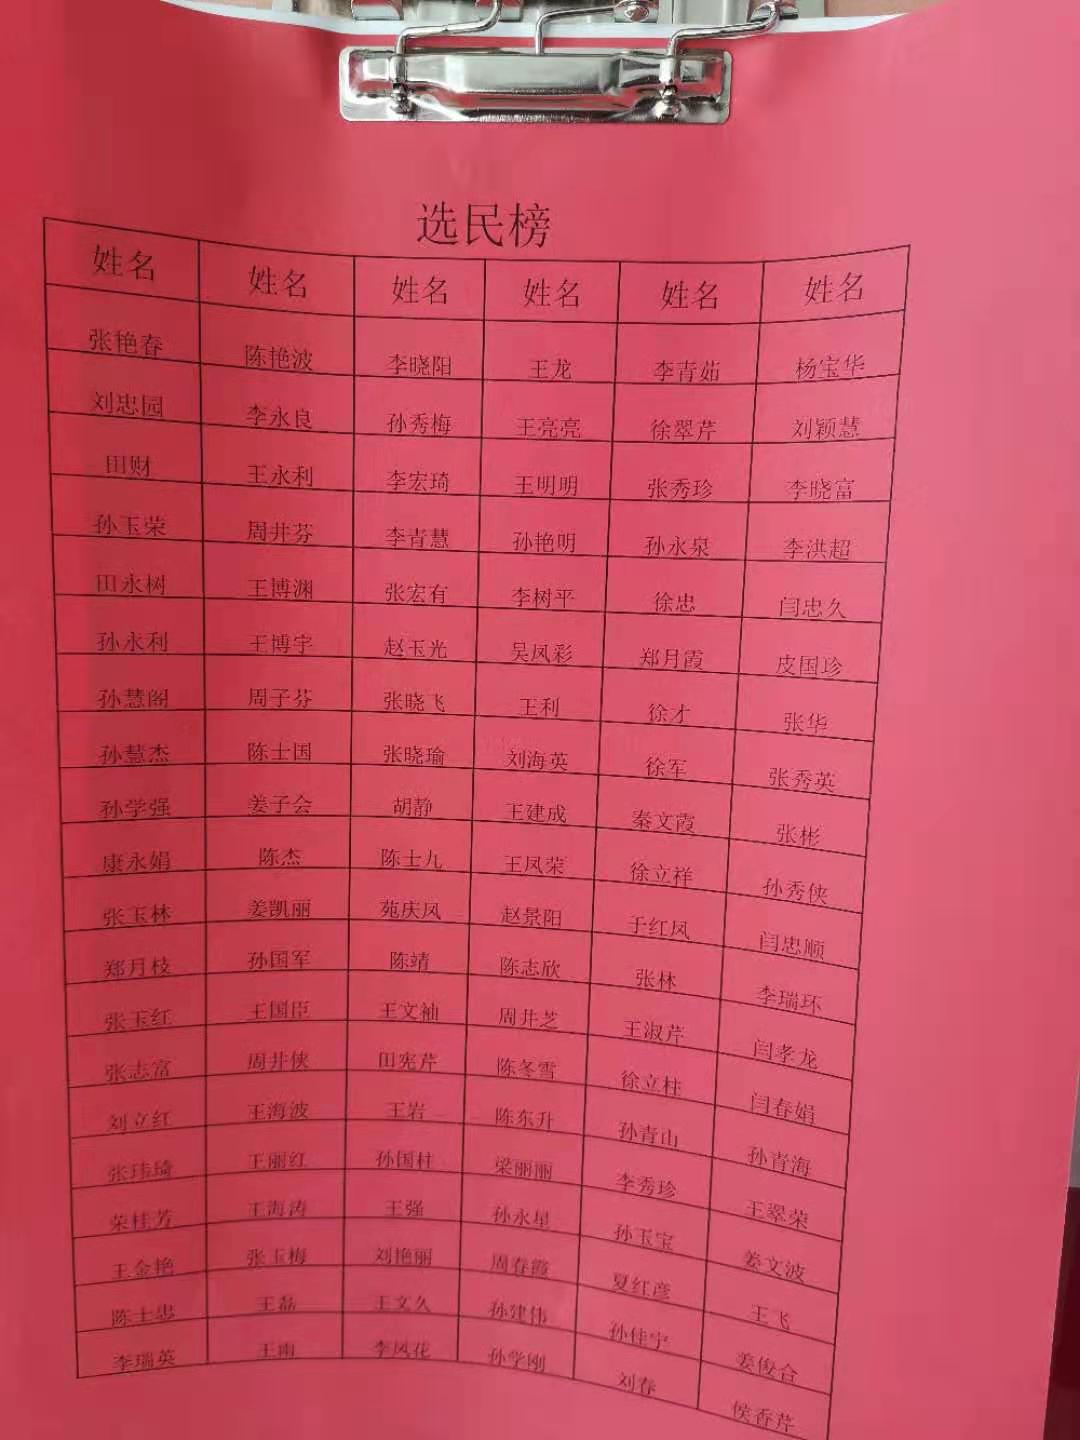 选民榜
姓名 姓名 姓名 姓名 姓名 姓名
张艳春 陈艳波 李晓阳 王龙 李青茹 杨宝华
刘忠园 李永良 孙秀梅 王亮亮 徐翠芹 刘颖慧
田财 王永利 李宏琦 王明明 张秀珍 李晓富
孙玉荣 周井芬 李青慧 孙艳明 孙永泉 李洪超
田永树 王博渊 张宏有 李树平 徐忠 闫忠久
孙永利 王博宇 赵玉光 吴凤彩 郑月霞 皮国珍
孙慧阁 周子芬 张晓飞 王利 徐才 张华
孙慧杰 陈士国 张晓瑜 刘海英 徐军 张秀英
孙学强 姜子会 胡静 王建成 秦文霞 张彬
康永娟 陈杰 陈士九 王凤荣 徐立祥 孙秀侠
张玉林 姜凯丽 苑庆凤 赵景阳 于红凤 闫忠顺
郑月枝 孙国军 陈靖 陈志欣 张林 李瑞环
张玉红 王国臣 王文袖 周井芝 王淑芹 闫孝龙
张志富 周井侠 田宪芹 陈冬雪 徐立柱 闫春娟
刘立红 王海波 王岩 陈东升 孙青山 孙青海
张玮琦 王丽红 孙国柱 梁丽丽 李秀珍 王翠荣
荣桂芳 王海涛 王强 孙永星 孙玉宝 姜文波
王金艳 张玉梅 刘艳丽 周春霞 夏红彦 王飞
陈士忠 王磊 王文久 孙建伟 孙佳宁 姜俊合
李瑞英 王雨 李凤花 孙学刚 刘春 侯香芹